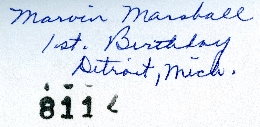 Marvin Marshall
1st. Birthday
Detroit, Mich.
811